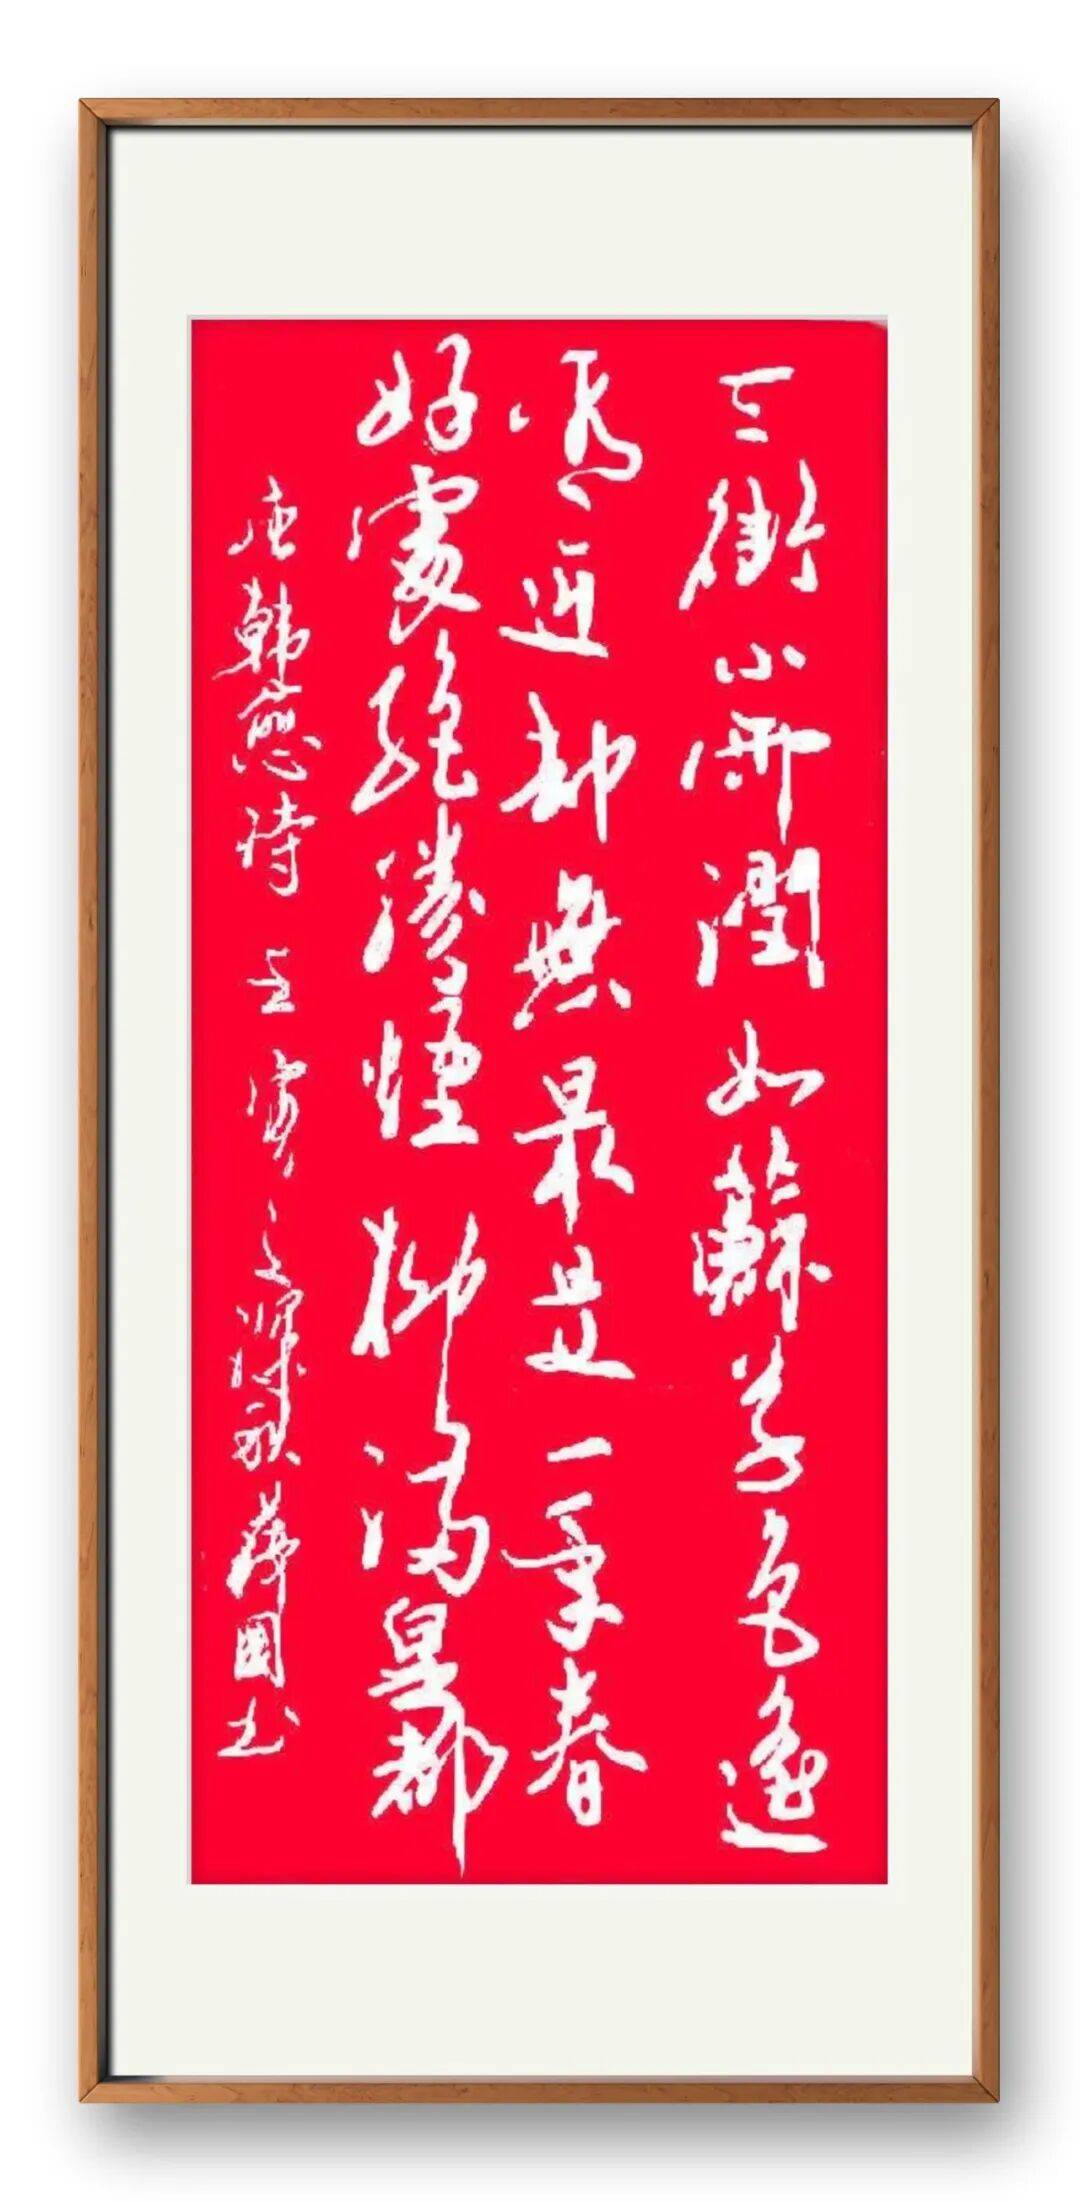 天街小雨潤如蘇草色遙
看近却無最是一年春
好處絕勝煙柳滿皇都
唐韓愈詩 壬寅之秋國书